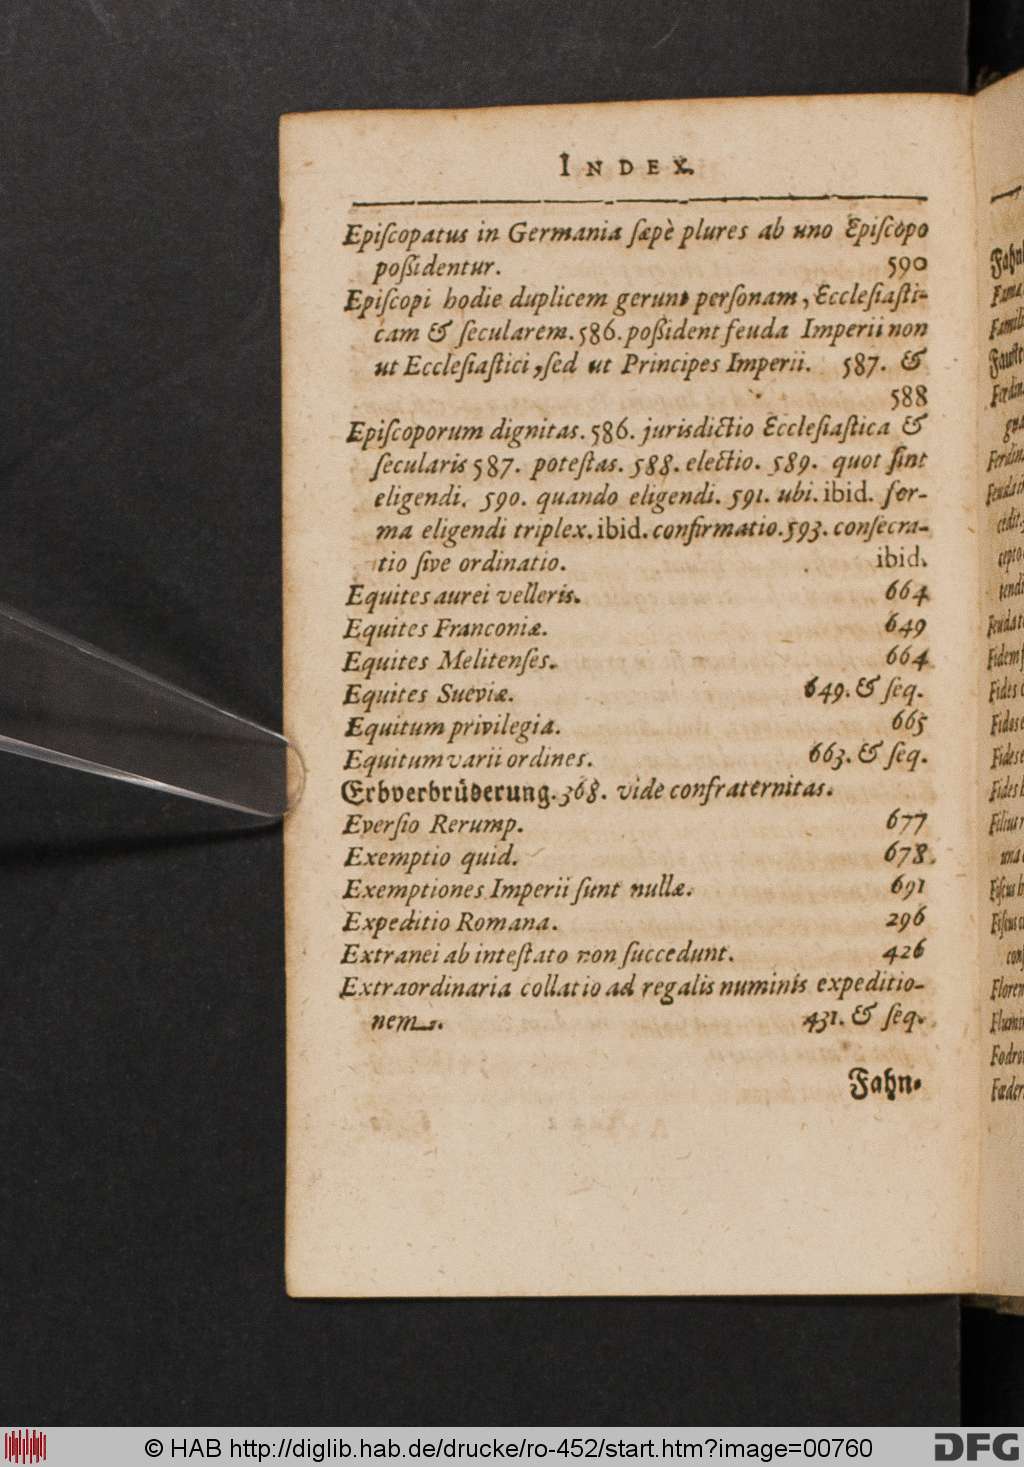 INDEX.
Episcopatus in Germania sæpè plures ab uno Episcopo
poßidentur. 590
Episcopi hodie duplicem gerunt personam, Ecclesiasti-
cam & secularem. 586. poßident feuda Imperii non
ut Ecclesiastici, sed ut Principes Imperii. 587. &
588
Episcoporum dignitas. 586. jurisdictio Ecclesiastica &
secularis 587. potestas. 588. electio. 589. quot sint
eligendi. 590. quando eligendi. 591. ubi. ibid. for-
ma eligendi triplex. ibid. confirmatio. 593. consecra-
tio sive ordinatio. ibid.
Equites aurei velleris. 664
Equites Franconiæ. 649
Equites Melitenses. 664
Equites Sueviæ. 649. & seq.
Equitum privilegia. 665
Equitum varii ordines. 663. & seq.
Erbverbrüderung. 368. vide confraternitas.
Eversio Rerump. 677
Exemptio quid. 678.
Exemptiones Imperii sunt nullæ. 691
Expeditio Romana. 296
Extranei ab intestato non succedunt. 426
Extraordinaria collatio ad regalis numinis expeditio-
nem. 431. & seq.
Fahn-
Fahn
Fama
Famili
Ferdin
Ferdin
cedit.
cepto
tendi
Fidem
Fides
Fides
una
Floren
Flumin
Fodro
Fœder
© HAB http://diglib.hab.de/drucke/ro-452/start.htm?image=00760
DFG